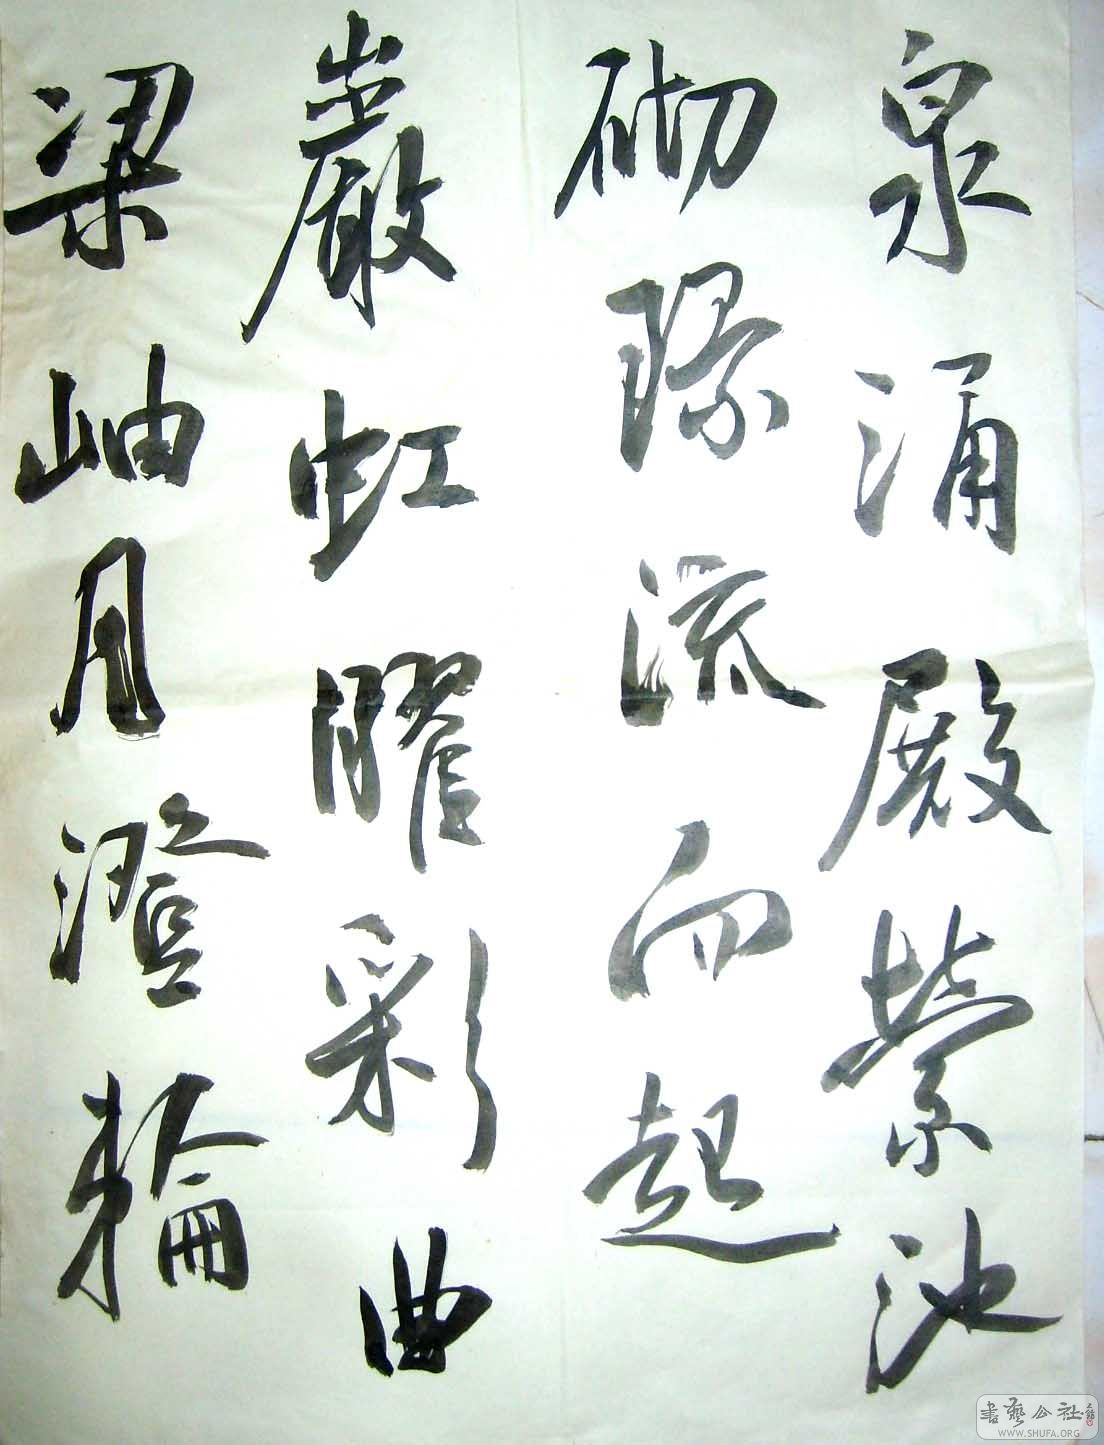 泉涌殿縈池
砌環流而起
巖虹曜彩曲
梁岫月澄輪
書藝公社
WWW.SHUFA.ORG